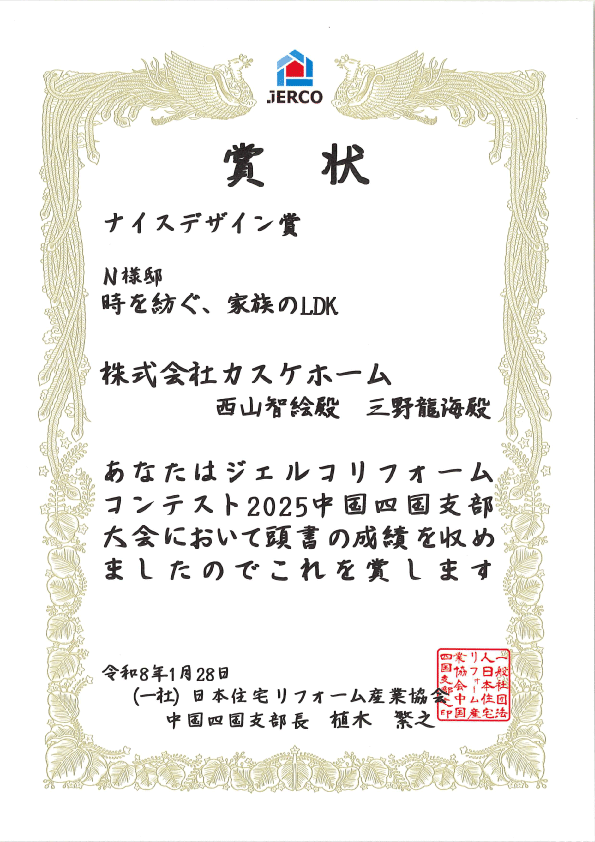 JERCO
賞 状
ナイスデザイン賞
N様邸
時を紡ぐ、家族のLDK
株式会社カスケホーム
西山智絵殿 三野龍海殿
あなたはジェルコリフォーム
コンテスト2025中国四国支部
大会において頭書の成績を収め
ましたのでこれを賞します
令和8年1月28日
(一社)日本住宅リフォーム産業協会
中国四国支部長 植木 繁之
一般社団法
人日本住宅
リフォーム産
業協会中国
四国支部之印